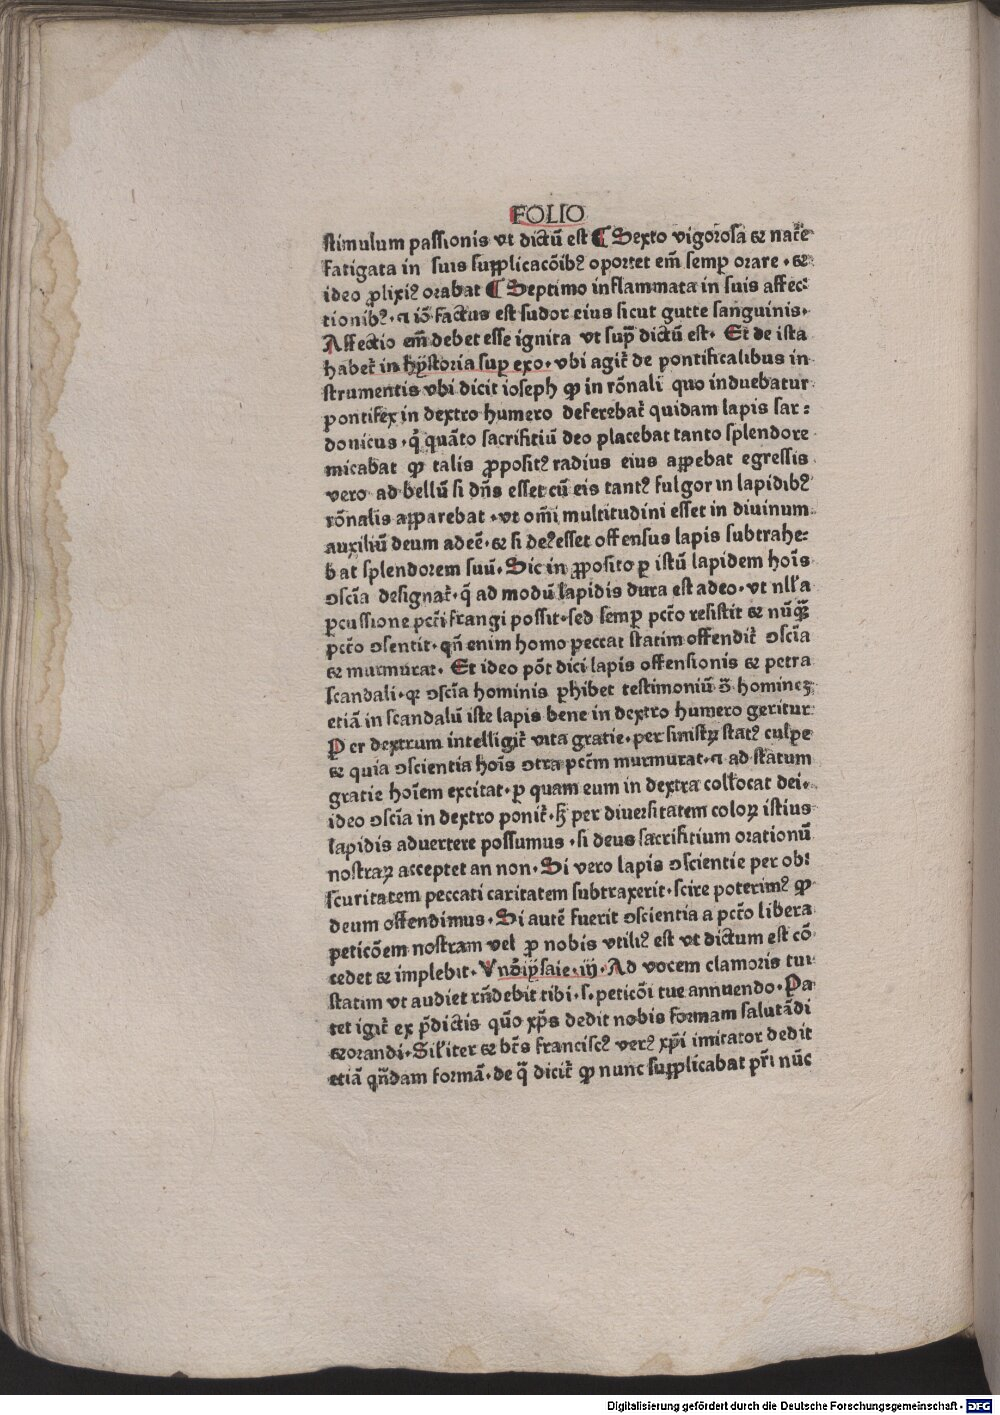 FOLIO
stimulum passionis vt dictū est ¶ Sexto vigorosa ⁊ nat̄e
fatigata in suis supplicacōib⁹ oportet em̄ semp̱ orare · ⁊
ideo ꝓlixi⁹ orabat ¶ Septimo inflammata in suis affec⸗
tionib⁹ · ⁊ iō factus est sudor eius sicut gutte sanguinis ·
Affectio em̄ debet esse ignita vt sup̄ dictū est · Et de ista
habet᷑ in hystoria sup̱ exo · vbi agit᷑ de pontificalibus in
strumentis vbi dicit ioseph ꝙ in rōnali quo induebatur
pontifex in dextro humero deferebat᷑ quidam lapis sar⸗
donicus · q̇ quāto sacrifitiū deo placebat tanto splendore
micabat ꝙ talis ꝓposit⁹ radius eius apꝑebat egressis
vero ad bellū si dn̄s esset cū eis tant⁹ fulgor in lapidib⁹
rōnalis apparebat · vt om̄i multitudini esset in diuinum
auxiliū deum adeē · ⁊ si de⁹ esset offensus lapis subtrahe⸗
bat splendorem suū · Sic in ꝓposito ꝑ istū lapidem hoīs
ꝯscīa designat᷑ · q̄ ad modū lapidis dura est adeo · vt nll'a
ꝑcussione pcc̄i frangi possit · sed semꝑ pcc̄o resistit ⁊ nūꝙ̄
pcc̄o ꝯsentit · qn̄ enim homo peccat statim offendit᷑ ꝯscīa
⁊ murmurat · Et ideo pōt dici lapis offensionis ⁊ petra
scandali · qꝛ ꝯscīa hominis ꝑhibet testimoniū ꝯ̄ hominez
etiā in scandalū iste lapis bene in dextro humero geritur
Per dextrum intelligit᷑ vita gratie · per sinistrꝝ stat⁹ culpe
⁊ quia ꝯscientia hoīs ꝯtra pcc̄m murmurat · ⁊ ad statum
gratie hoīem excitat · ꝑ quam eum in dextra collocat dei ·
ideo ꝯscīa in dextro ponit᷑ · ꝫ per diuersitatem coloꝝ istius
lapidis aduertere possumus · si deus sacrifitium orationū
nostraꝝ acceptet an non · Si vero lapis ꝯscientie per ob⸗
scuritatem peccati caritatem subtraxerit · scire poterim⁹ ꝙ
deum offendimus · Si autē fuerit ꝯscientia a pcc̄o libera
peticōem nostram vel ꝓ nobis vtili⁹ est vt dictum est cō
cedet ⁊ implebit · Vnd̄ ysaie · iij · Ad vocem clamoris tui
statim vt audiet rn̄debit tibi · s · peticōi tue annuendo · Pa
tet igit᷑ ex p̄dictis quō xp̄s dedit nobis formam salutādi
⁊ orandi · Sil'iter ⁊ bt̄s francisc⁹ ver⁹ xp̄i imitator dedit
etiā qn̄dam formā · de q̄ dicit᷑ ꝙ nunc supplicabat pr̄i nūc
Digitalisierung gefördert durch die Deutsche Forschungsgemeinschaft - DFG